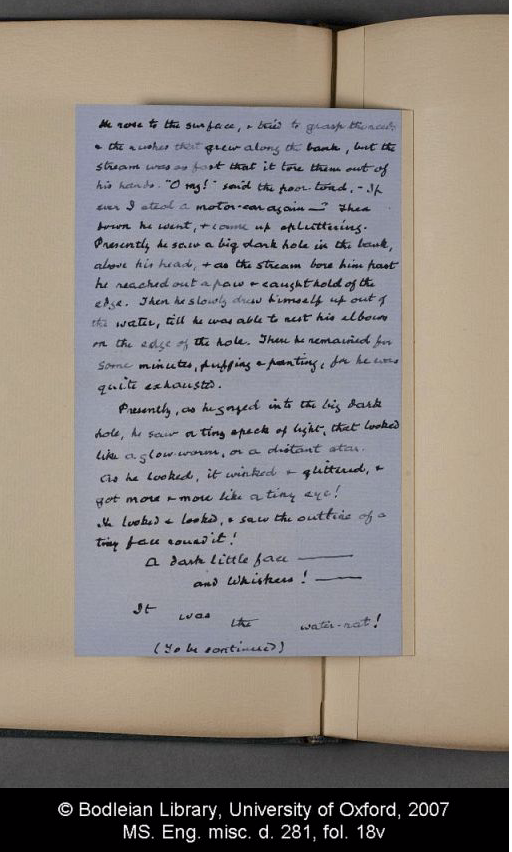 He rose to the surface, & tried to grasp the reeds
& the rushes that grew along the bank, but the
stream was so fast that it tore them out of
his hands. "O my!" said the poor toad, - If
ever I steal a motor-car again—" Then
down he went, & came up spluttering.
Presently he saw a big dark hole in the bank,
above his head, & as the stream bore him past
he reached out a paw & caught hold of the
edge. Then he slowly drew himself up out of
the water, till he was able to rest his elbows
on the edge of the hole. There he remained for
some minutes, puffing & panting, for he was
quite exhausted.
Presently, as he gazed into the big dark
hole, he saw a tiny speck of light, that looked
like a glow-worm, or a distant star.
As he looked, it winked & glittered, &
got more & more like a tiny eye!
He looked & looked, & saw the outline of a
tiny face round it!
A dark little face ——
and whiskers! ——
It was the water-rat!
(To be continued)
© Bodleian Library, University of Oxford, 2007
MS. Eng. misc. d. 281, fol. 18v